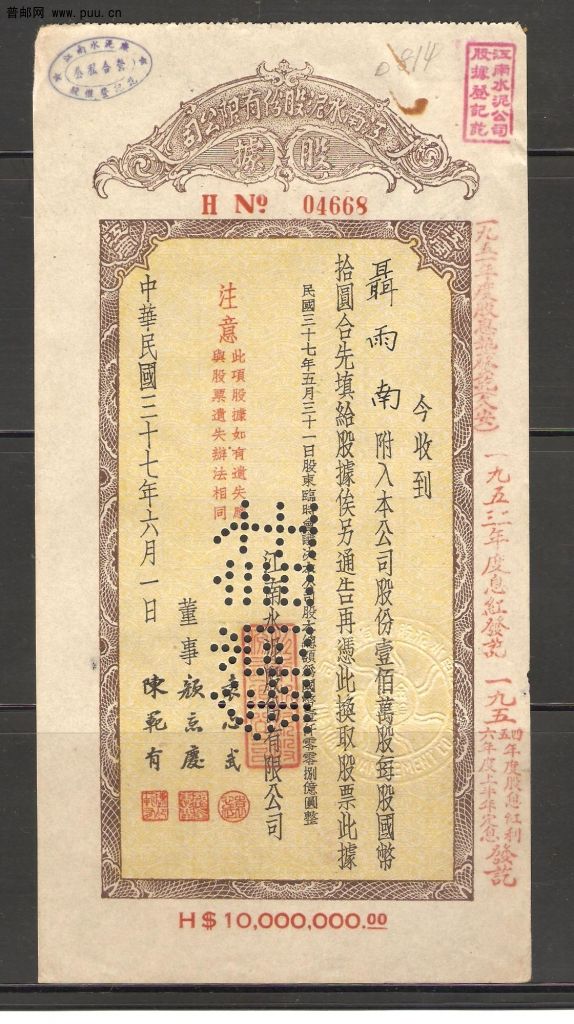 普邮网 www.puu.cn
江南水泥公司
股據登記訖
0814
江南水泥股份有限公司
股據
H No 04668
今收到
聶雨南附入本公司股份壹佰萬股每股國幣
拾圓合先填給股據俟另通告再憑此換取股票此據
民國三十七年五月三十一日股東臨時會議決本公司股本總額為國幣壹仟零零捌億圓整
注意 此項股據如有遺失應
與股票遺失辦法相同
江南水泥股份有限公司
董事
袁心武
顏惠慶
陳範有
中華民國三十七年六月一日
作廢
一九五三年度息紅發訖
一九五四五六年度股息紅利
年度上半年定息發訖
H$10,000,000.00